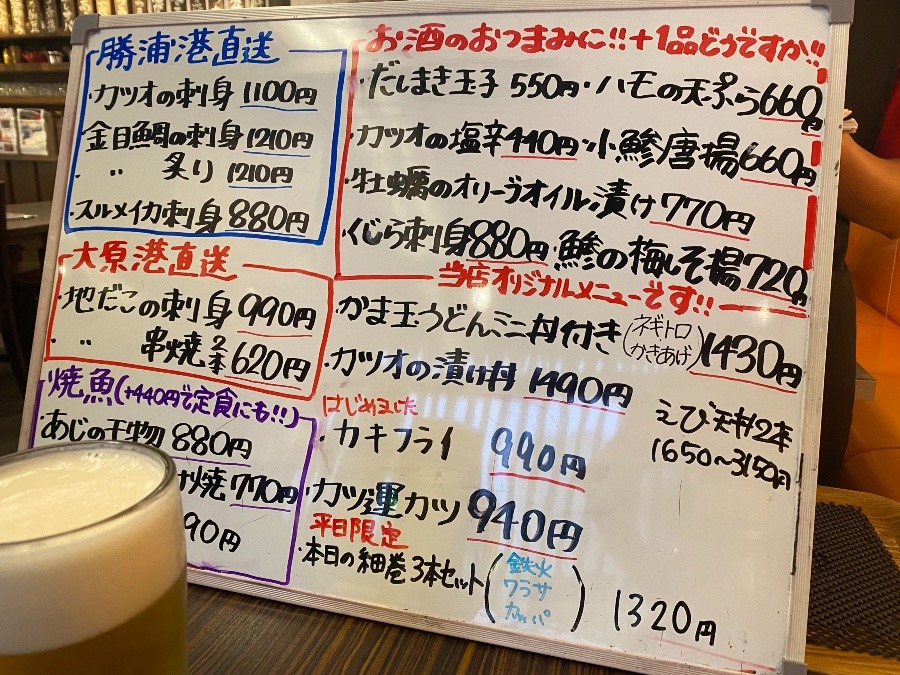 勝浦港直送
・カツオの刺身 1100円
・金目鯛の刺身 1210円
・ 〃 炙り 1210円
・スルメイカ刺身 880円
大原港直送
・地だこの刺身 990円
・ 〃 串焼2本 620円
焼魚(+440円で定食にも!!)
・あじの干物 880円
焼 770円
90円
お酒のおつまみに!!+1品どうですか!!
・だしまき玉子 550円・ハモの天ぷら 660円
・カツオの塩辛 440円・小鯵唐揚 660円
・牡蠣のオリーブオイル漬け 770円
・くじら刺身 880円・鯵の梅しそ揚 720円
当店オリジナルメニューです!!
・かま玉うどんミニ丼付き(ネギトロ かきあげ) 1430円
・カツオの漬け丼 1490円
えび天丼2本
1650～3150円
はじめました
・カキフライ 990円
・カツ運カツ 940円
平日限定
・本日の細巻3本セット(鉄火 ワラサ カッパ) 1320円